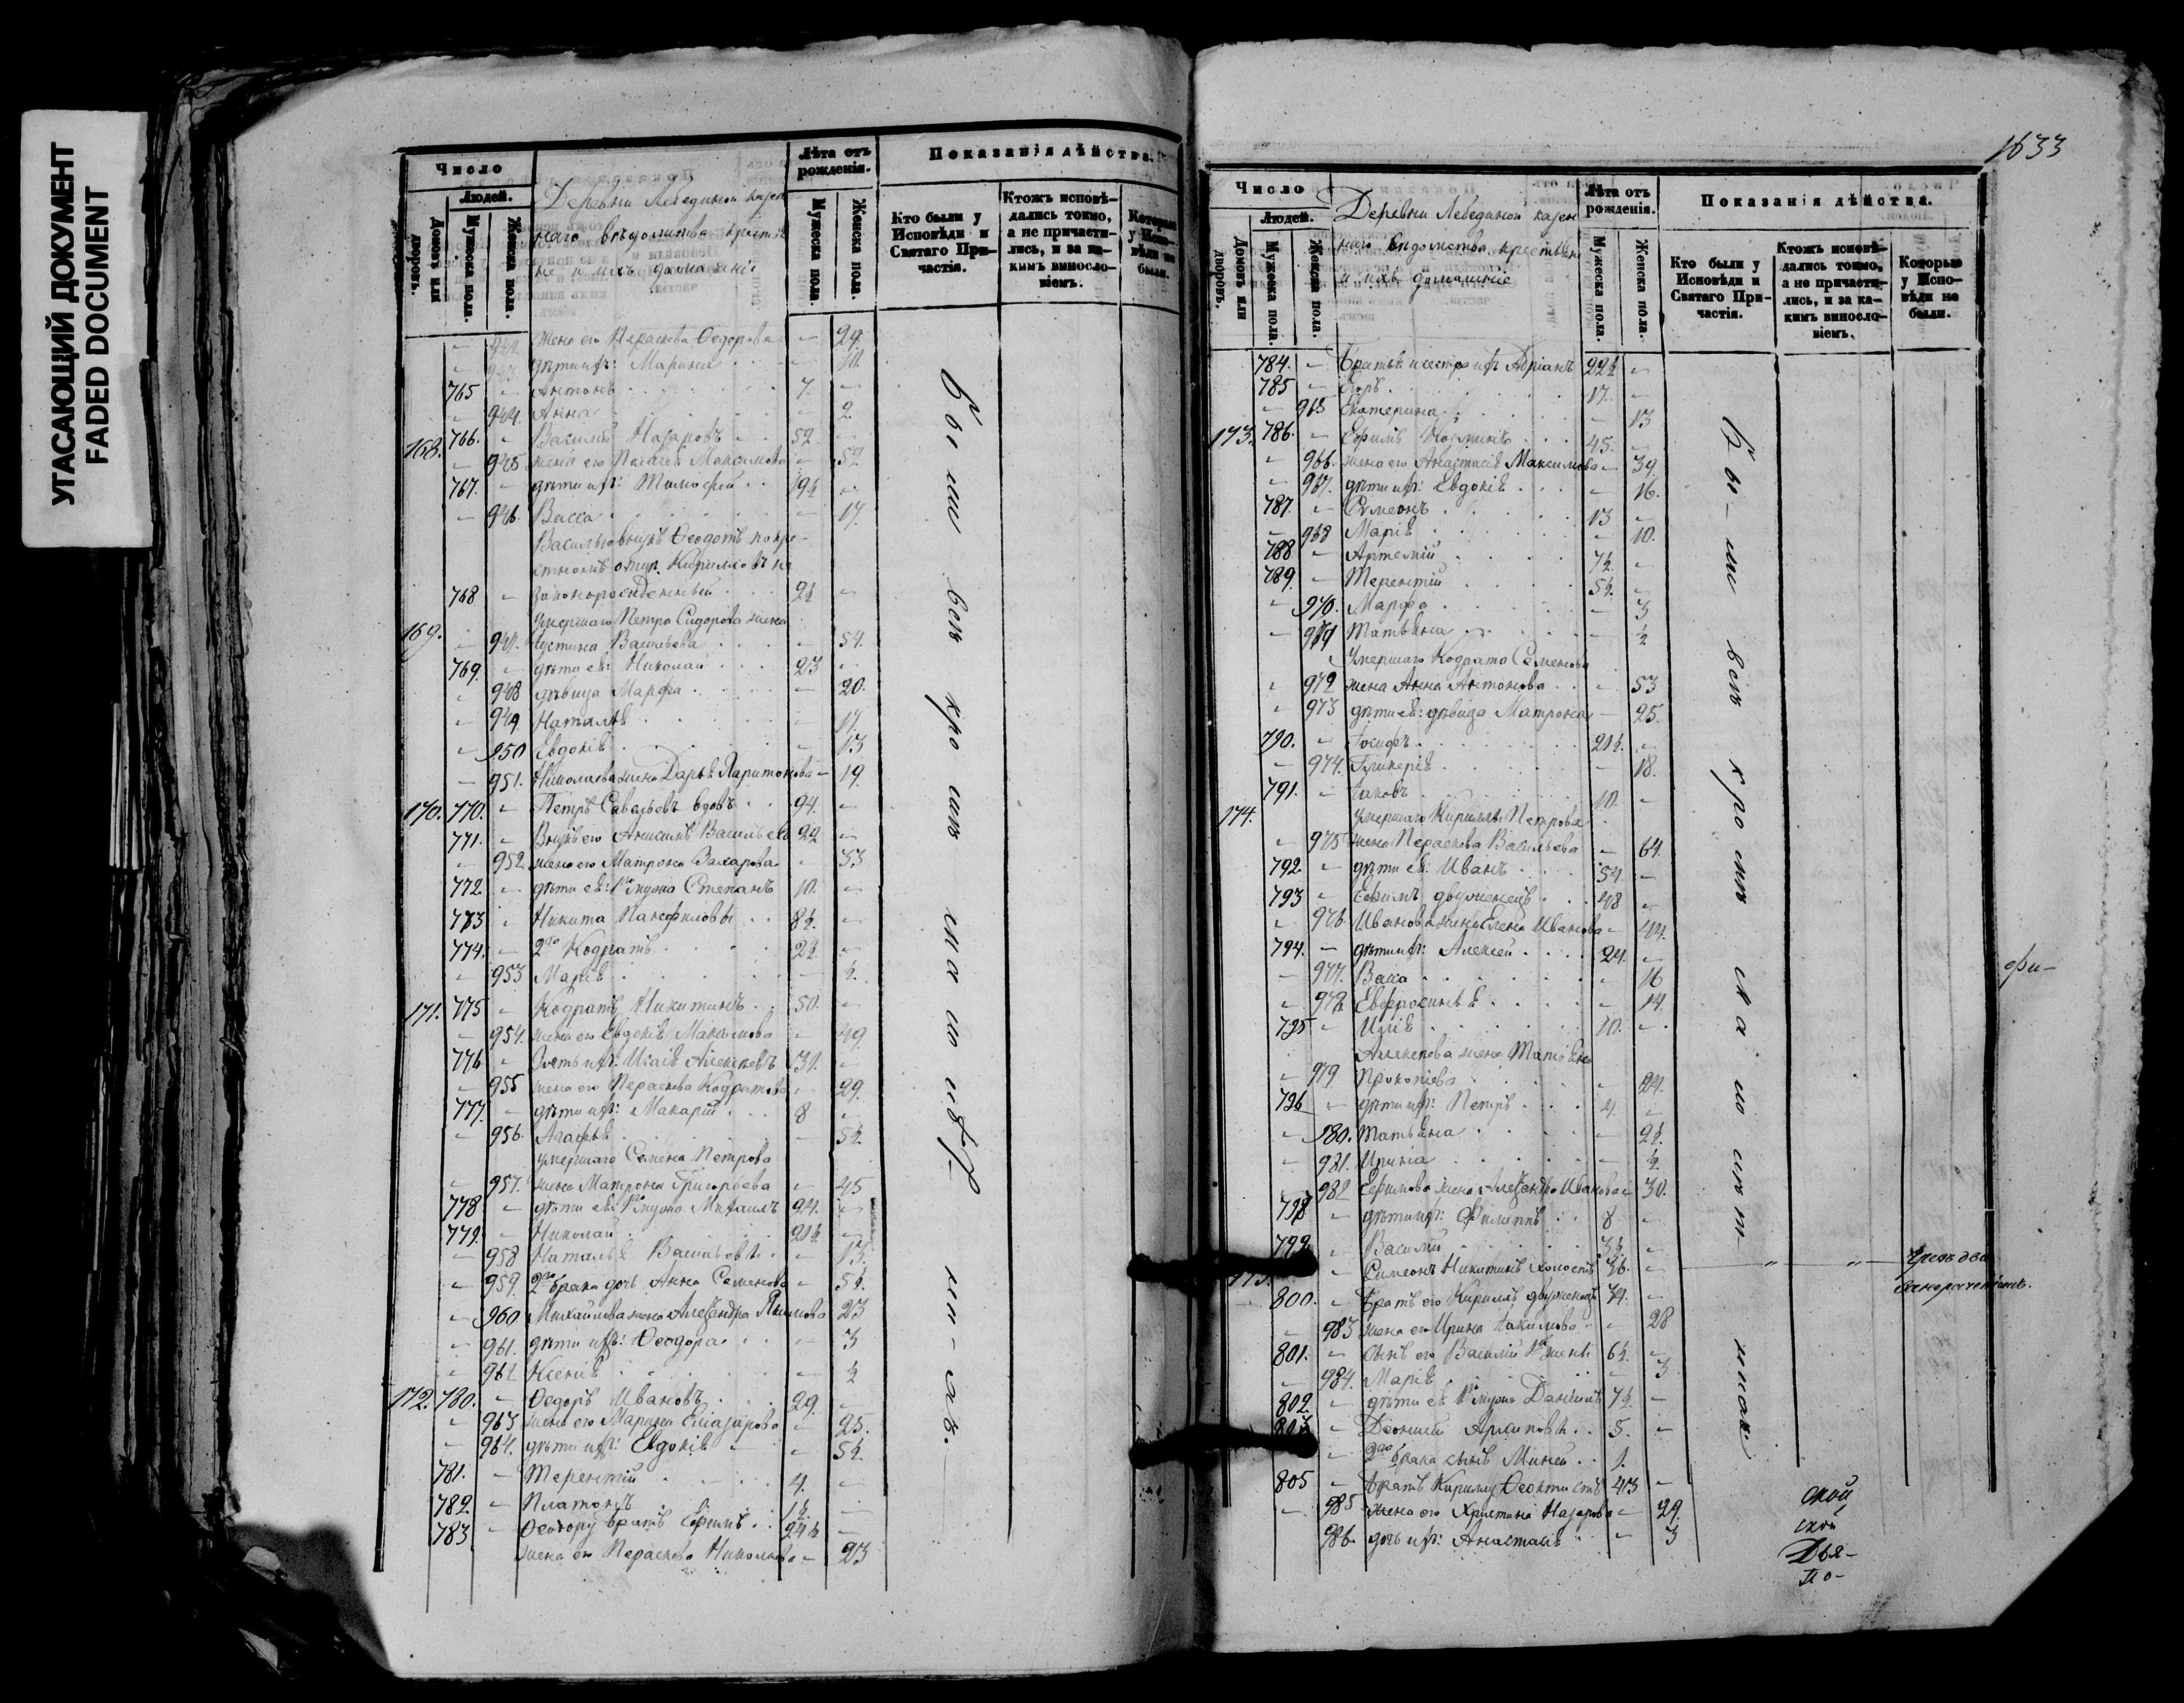 УГАСАЮЩИЙ ДОКУМЕНТ
FADED DOCUMENT
Число
Людей.
Домовъ или дворовъ.
Мужеска пола.
Женска пола.
Деревни Лебединой казен
наго вѣдомства крестья
не и ихъ домашніе
Лѣта отъ рожденія.
Мужеска пола.
Женска пола.
Показанія дѣйства.
Кто были у Исповѣди и Святаго Причастія.
Ктожъ исповѣдались токмо, а не причастились, и за какимъ винословіемъ.
Которые у Исповѣди не были.
942 жена его Параскева Ѳедорова - 29.
943 дѣти ихъ: Марина - 10.
765 - Антонъ 7. -
- 944. Анна - 2
168. 766. - Василій Назаровъ 52 -
- 945 жена его Пелагея Максимова - 52.
767. - дѣти ихъ: Тимофей 19½ -
- 946. Васса - 17.
Васильевъ внукъ Ѳеодотъ по кре-
стномъ отцу Кириловъ не
768 - законорожденный 2½ -
169. умершаго Петра Сидорова жена
- 947. Устина Васильева - 54.
769. - дѣти ея: Николай 23 -
- 948 дѣвица Марфа - 20.
- 949 Наталья - 17.
- 950 Евдокія - 13
- 951. Николаева жена Дарья Харитонова - 19.
170. 770. - Петръ Савельевъ вдовъ 94. -
771. - Внукъ его Анисимъ Васильевъ 22 -
- 952 жена его Матрона Захарова - 33
772 - дѣти ея: 1го мужа Степанъ 10. -
773 - Никита Панфиловы 8½ -
774. - 2го Кодратъ 2½ -
- 953 Марія - ½.
171. 775 - Кодратъ Никитинъ 50. -
- 954. жена его Евдокія Максимова - 49
776 - Зять ихъ: Исаія Алексѣевъ 31. -
- 955 жена его Параскева Кодратова - 29.
777. - дѣти ихъ: Макарій 8 -
- 956. Агафья - 5½.
умершаго Семена Петрова
- 957. жена Матрона Григорьева - 45
778 - дѣти ея: 1го мужа Михаилъ 24. -
779. - Николай 20½ -
- 958 Наталья Васильевы - 13.
- 959. 2го брака дочь Анна Семенова - 5½.
- 960 Михайлова жена Александра Якимова 23
- 961. дѣти ихъ: Ѳеодора - 3
- 962 Ксенія - ½
172. 780. - Ѳедоръ Ивановъ 29. -
- 963 жена его Марина Елиазарова - 25.
- 964. дѣти ихъ: Евдокія - 5½.
781. - Терентій 4. -
782. - Платонъ 1½ -
783 - Ѳеодору братъ Ефимъ 24½ -
жена его Параскева Николаева - 23
Были всѣ кромѣ малолѣт-
нихъ.
1633
Число
Людей.
Домовъ или дворовъ.
Мужеска пола.
Женска пола.
Деревни Лебединой казен
наго вѣдомства крестьяне
и ихъ домашніе
Лѣта отъ рожденія.
Мужеска пола.
Женска пола.
Показанія дѣйства.
Кто были у Исповѣди и Святаго Причастія.
Ктожъ исповѣдались токмо, а не причастились, и за какимъ винословіемъ.
Которые у Исповѣди не были.
784. - братья и сестра ихъ Адріанъ 22½ -
785 - Егоръ 17. -
- 965 Екатерина - 13
173. 786. - Ефимъ Козминъ 45. -
- 966. жена его Анастасія Максимова - 39.
- 967. дѣти ихъ: Евдокія - 16.
787. - Симеонъ 13 -
- 968 Марія - 10.
788 - Артемій 7½. -
789. - Терентій 5½. -
- 970. Марфа - 3
- 971 Татьяна - ½
умершаго Кодрата Семенова
- 972 жена Анна Антонова - 53
- 973 дѣти ея: дѣвица Матрона - 25.
790. - Іосифъ 20½. -
- 974. Гликерія - 18.
791. - Іаковъ 10. -
174. умершаго Кирилла Петрова
- 975 жена Параскева Васильева - 64.
792. - дѣти ея: Иванъ 54. -
793 - Ефимъ двоженецъ 48 -
- 976. Иванова жена Елена Иванова - 44.
794. - дѣти ихъ: Алексей 24. -
- 977. Васса - 16
- 978. Евфросинья - 14.
795 - Илія 10. -
Алексеева жена Татьяна
- 979. Прокопіева - 24.
796 - дѣти ихъ: Петръ 4. -
- 980. Татьяна - 2½.
- 981. Ирина - ½
- 982 Ефимова жена Александра Иванова - 30.
798 - дѣти ихъ: Филиппъ 8 -
799. - Василій 3½ -
- Симеонъ Никитинъ холостъ 36. -
800. - братъ его Кирилъ двоженецъ 34. -
- 983 жена его Ирина Іакимова - 28
801. - сынъ его Василій 1й жены 6½. -
- 984. Марія - 3
802. - дѣти ея 1го мужа Даніилъ 7½ -
803 - Діонисій Архиповы 5. -
- 2го брака сынъ Миней 1. -
805 - братъ Кирилу Ѳеоктистъ 43 -
- 985 жена его Христина Назарова - 29.
- 986. дочь ихъ: Анастасія - 3
Бы-ли всѣ кромѣ малолѣт-
нихъ.
чрезъ два
фи-
ской
ской
Дья-
по-